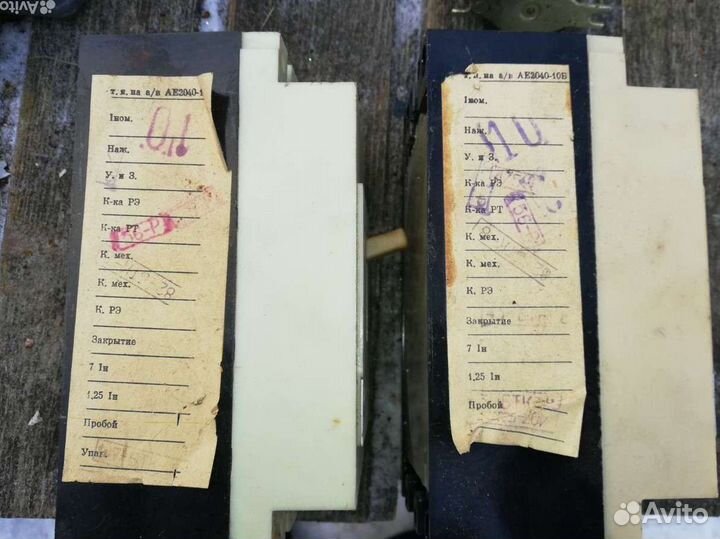 Avito
т. н. на а/в АЕ2040-1
Iном.
Наж.
У. и З.
К-ка РЭ
К-ка РТ
К. мех.
К. мех.
К. РЭ
Закрытие
7 Iн
1,25 Iн
Пробой
Упак.
т. н. на а/в АЕ2040-10Б
Iном.
Наж.
У. и З.
К-ка РЭ
К-ка РТ
К. мех.
К. мех.
К. РЭ
Закрытие
7 Iн
1,25 Iн
Пробой
Avito